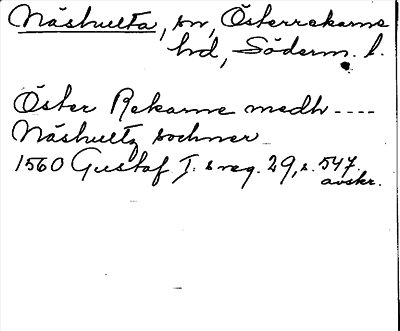 Näshulta, sn, Österrekarne
hd, Söderm. l.
Öster Rekarne medh ----
Näshultz sochner
1560 Gustaf I:s reg. 29, s. 547.
avskr.